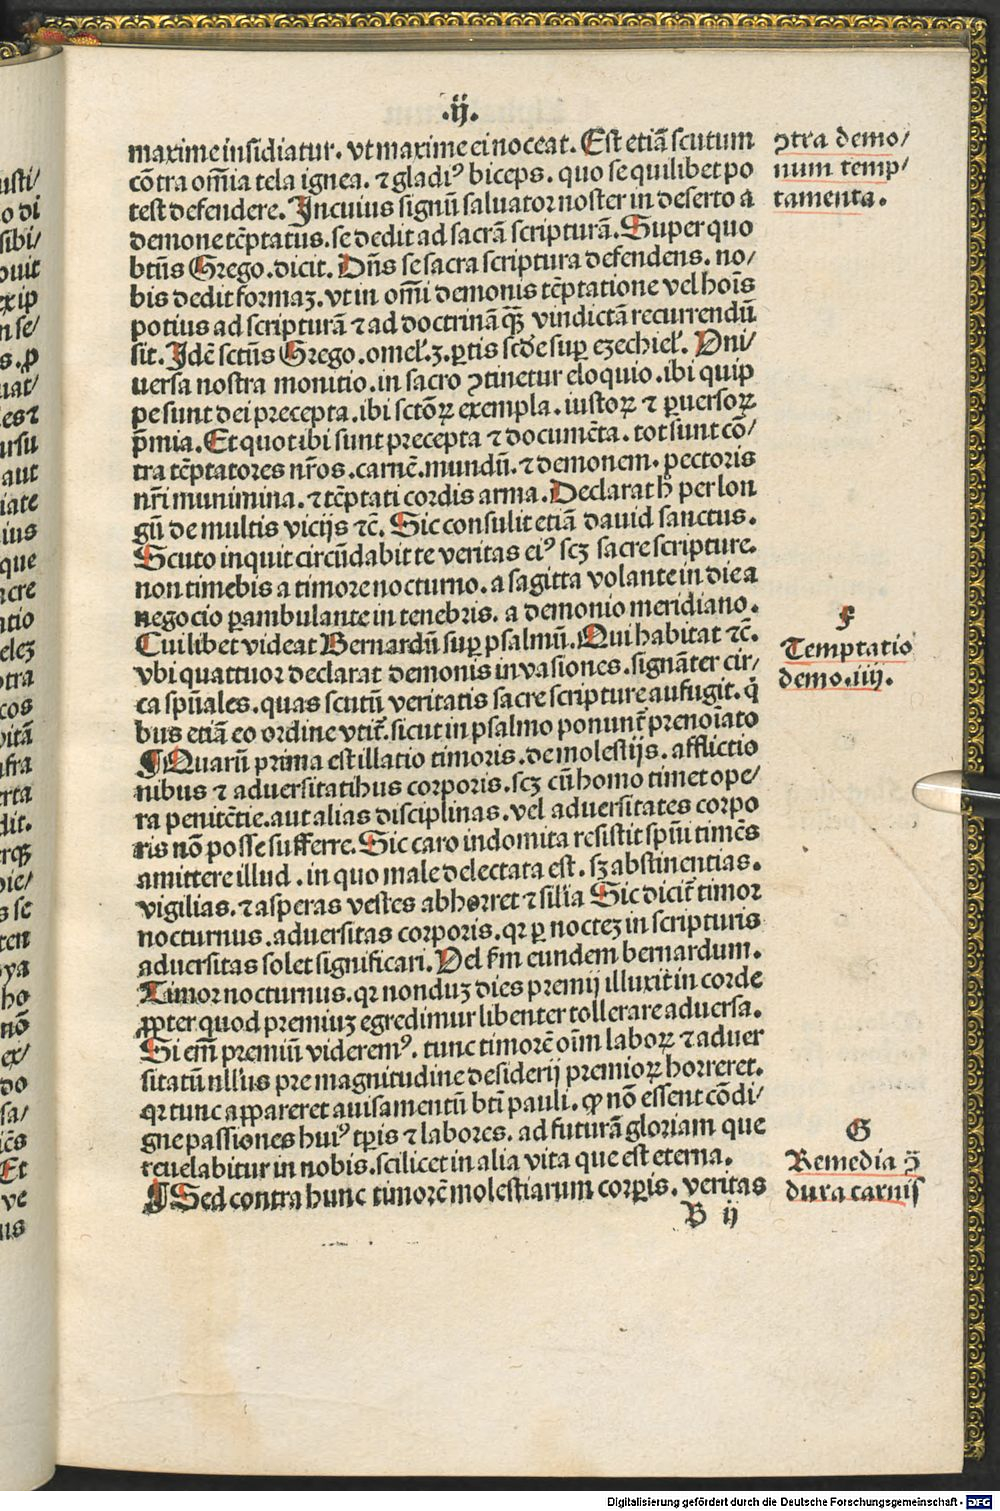 .ij.
maxime insidiatur. vt maxime ei noceat. Est etiā scutum
cōtra om̄ia tela ignea. ⁊ gladiꝰ biceps. quo se quilibet po
test defendere. In cuius signū saluator noster in deserto a
demone tēptatus. se dedit ad sacrā scripturā. Super quo
btūs Grego. dicit. Dn̄s se sacra scriptura defendens. no/
bis dedit formaꝫ. vt in om̄i demonis tēptatione vel hoīs
potius ad scripturā ⁊ ad doctrinā qꝫ̄ vindictā recurrendū
sit. Idē sctūs Grego. omel'. ꝫ. ꝑtis scd̄e suꝑ ezechiel'. Vni/
uersa nostra monitio. in sacro ꝯtinetur eloquio. ibi quip
pe sunt dei precepta. ibi sctōꝝ exempla. iustoꝝ ⁊ ꝑuersoꝝ
p̄mia. Et quot ibi sunt precepta ⁊ documēta. tot sunt cō/
tra tēptatores nr̄os. carnē. mundū. ⁊ demonem. pectoris
nr̄i munimina. ⁊ tēptati cordis arma. Declarat h̄ per lon
gū de multis vicijs ⁊c̄. Sic consulit etiā dauid sanctus.
Scuto inquit circūdabit te veritas eiꝰ scꝫ sacre scripture.
non timebis a timore nocturno. a sagitta volante in die a
negocio ꝑambulante in tenebris. a demonio meridiano.
Cuilibet videat Bernardū suꝑ psalmū. Qui habitat ⁊c̄.
vbi quattuor declarat demonis inuasiones. signāter cir/
ca spūales. quas scutū veritatis sacre scripture aufugit. q̇
bus etiā eo ordine vtit᷑. sicut in psalmo ponunt᷑ prenoīato
¶ Quarū prima est illatio timoris. de molestijs. afflictio
nibus ⁊ aduersitatibus corporis. scꝫ cū homo timet ope/
ra penitētie. aut alias disciplinas. vel aduersitates corpo
ris nō posse sufferre. Sic caro indomita resistit spūi timēs
amittere illud. in quo male delectata est. sꝫ abstinentias.
vigilias. ⁊ asperas vestes abhorret ⁊ sil̄ia Sic dicit᷑ timor
nocturnus. aduersitas corporis. qꝛ ꝑ nocteꝫ in scripturis
aduersitas solet significari. Vel s̄m eundem bernardum.
Timor nocturnus. qꝛ nonduꝫ dies premij illuxit in corde
ꝓpter quod premiuꝫ egredimur libenter tollerare aduersa.
Si em̄ premiū videremꝰ. tunc timorē oīm laboꝝ ⁊ aduer
sitatū nll'us pre magnitudine desiderij premioꝝ horreret.
qꝛ tunc appareret auisamentū bti̅ pauli. ꝙ nō essent cōdi/
gne passiones huiꝰ tꝑis ⁊ labores. ad futurā gloriam que
reuelabitur in nobis. scilicet in alia vita que est eterna.
¶ Sed contra hunc timorē molestiarum corꝑis. veritas
B ij
ꝯtra demo/
num temp/
tamenta.
F
Temptatio
demo. iiij.
G
Remedia ꝯ̄
dura carnis
Digitalisierung gefördert durch die Deutsche Forschungsgemeinschaft - DFG